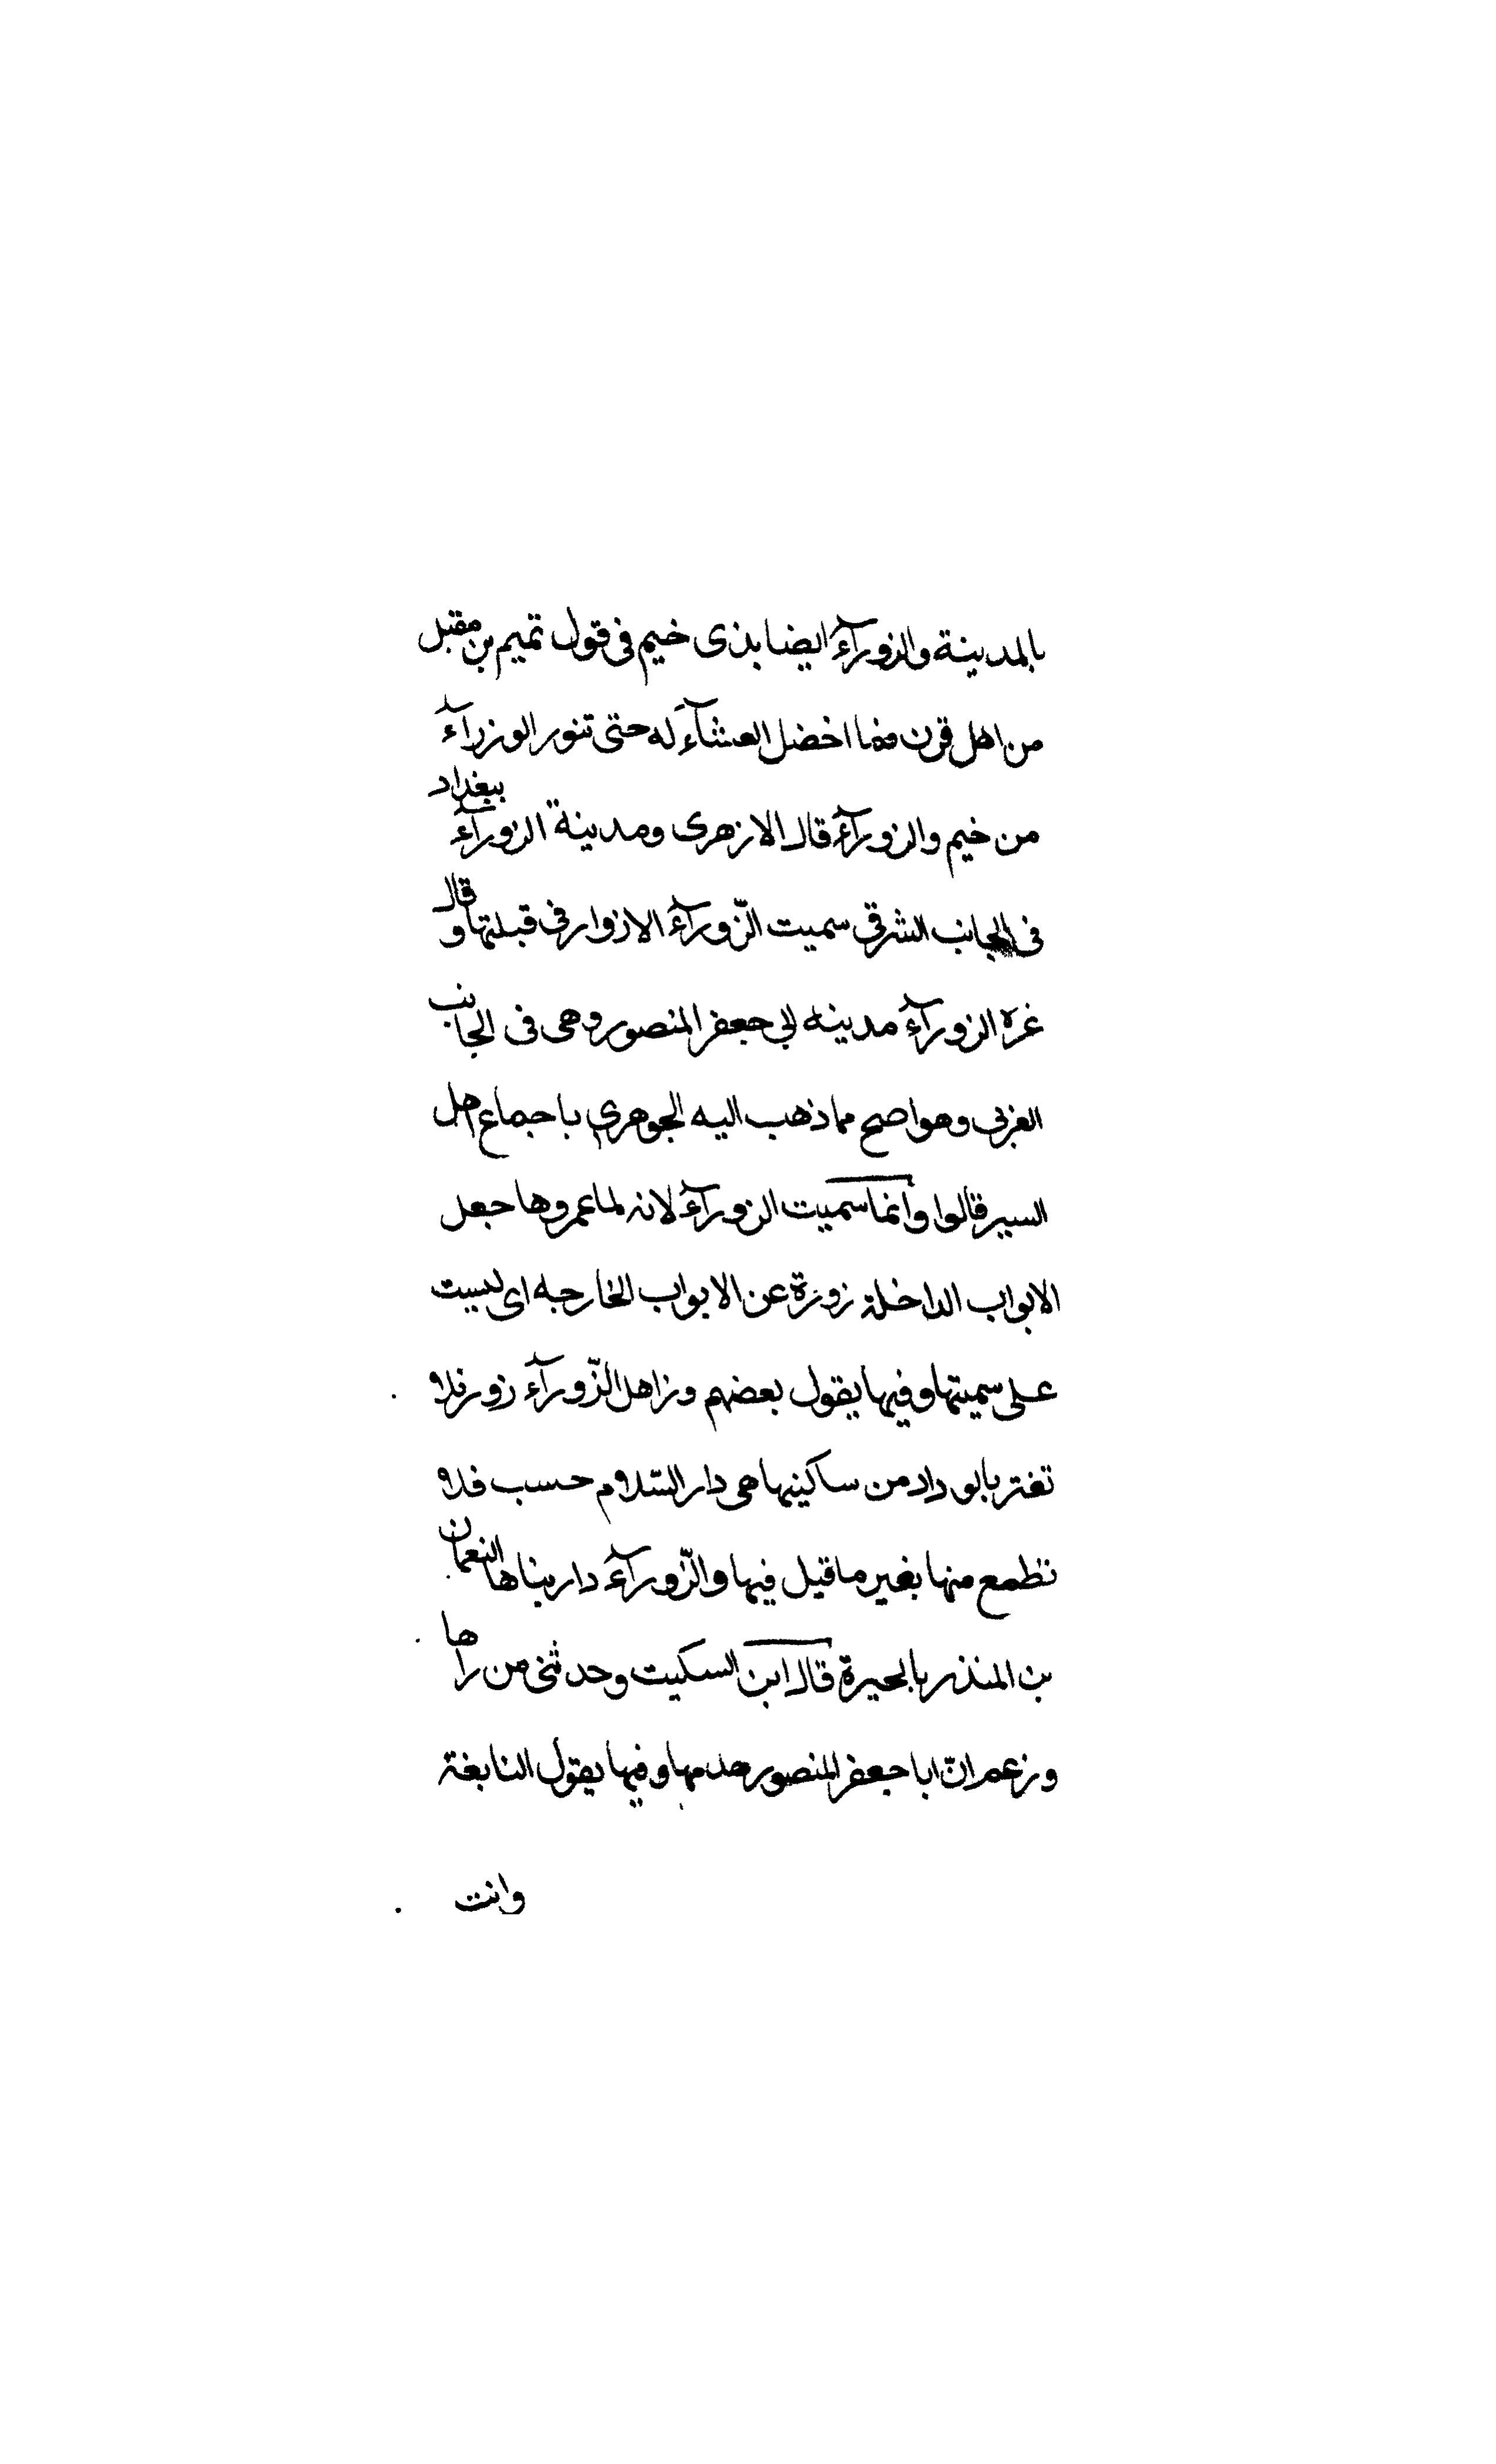 بالمدينة والزورآء ايضا بذى خيم فى قول تميم بن مقبل
من اهل قرن فما اخضل العشآء له حتى تنور الوزراء
من خيم والزورآء قال الازهرى ومدينة الزورآء ببغداد
فى الجانب الشرقى سميت الزّورآء الازوار فى قبلتها وقال
غره الزورآء مدينه ابي جعفر المنصور وهى فى الجانب
الغربى وهو اصح مما ذهب اليه الجوهرى باجماع اهل
السير قالوا وانما سميت الزورآء لانه لما عمروها جعل
الابواب الداخلة زورة عن الابواب الخارجه اى ليست
على سميتها وفيها يقول بعضهم وزاهل الزّورآء زور فلا
تغتر بالوداد من ساكنيها هى دار السّلام حسب فلا
تطمع منها بغير ما قيل فيها والزّورآء دار بناها النعمان
بن المنذر بالحيرة قال ابن السكيت وحدثنى من راها
وزعم انّ ابا جعفر المنصور هدمها وفيها يقول النابغة
وانت